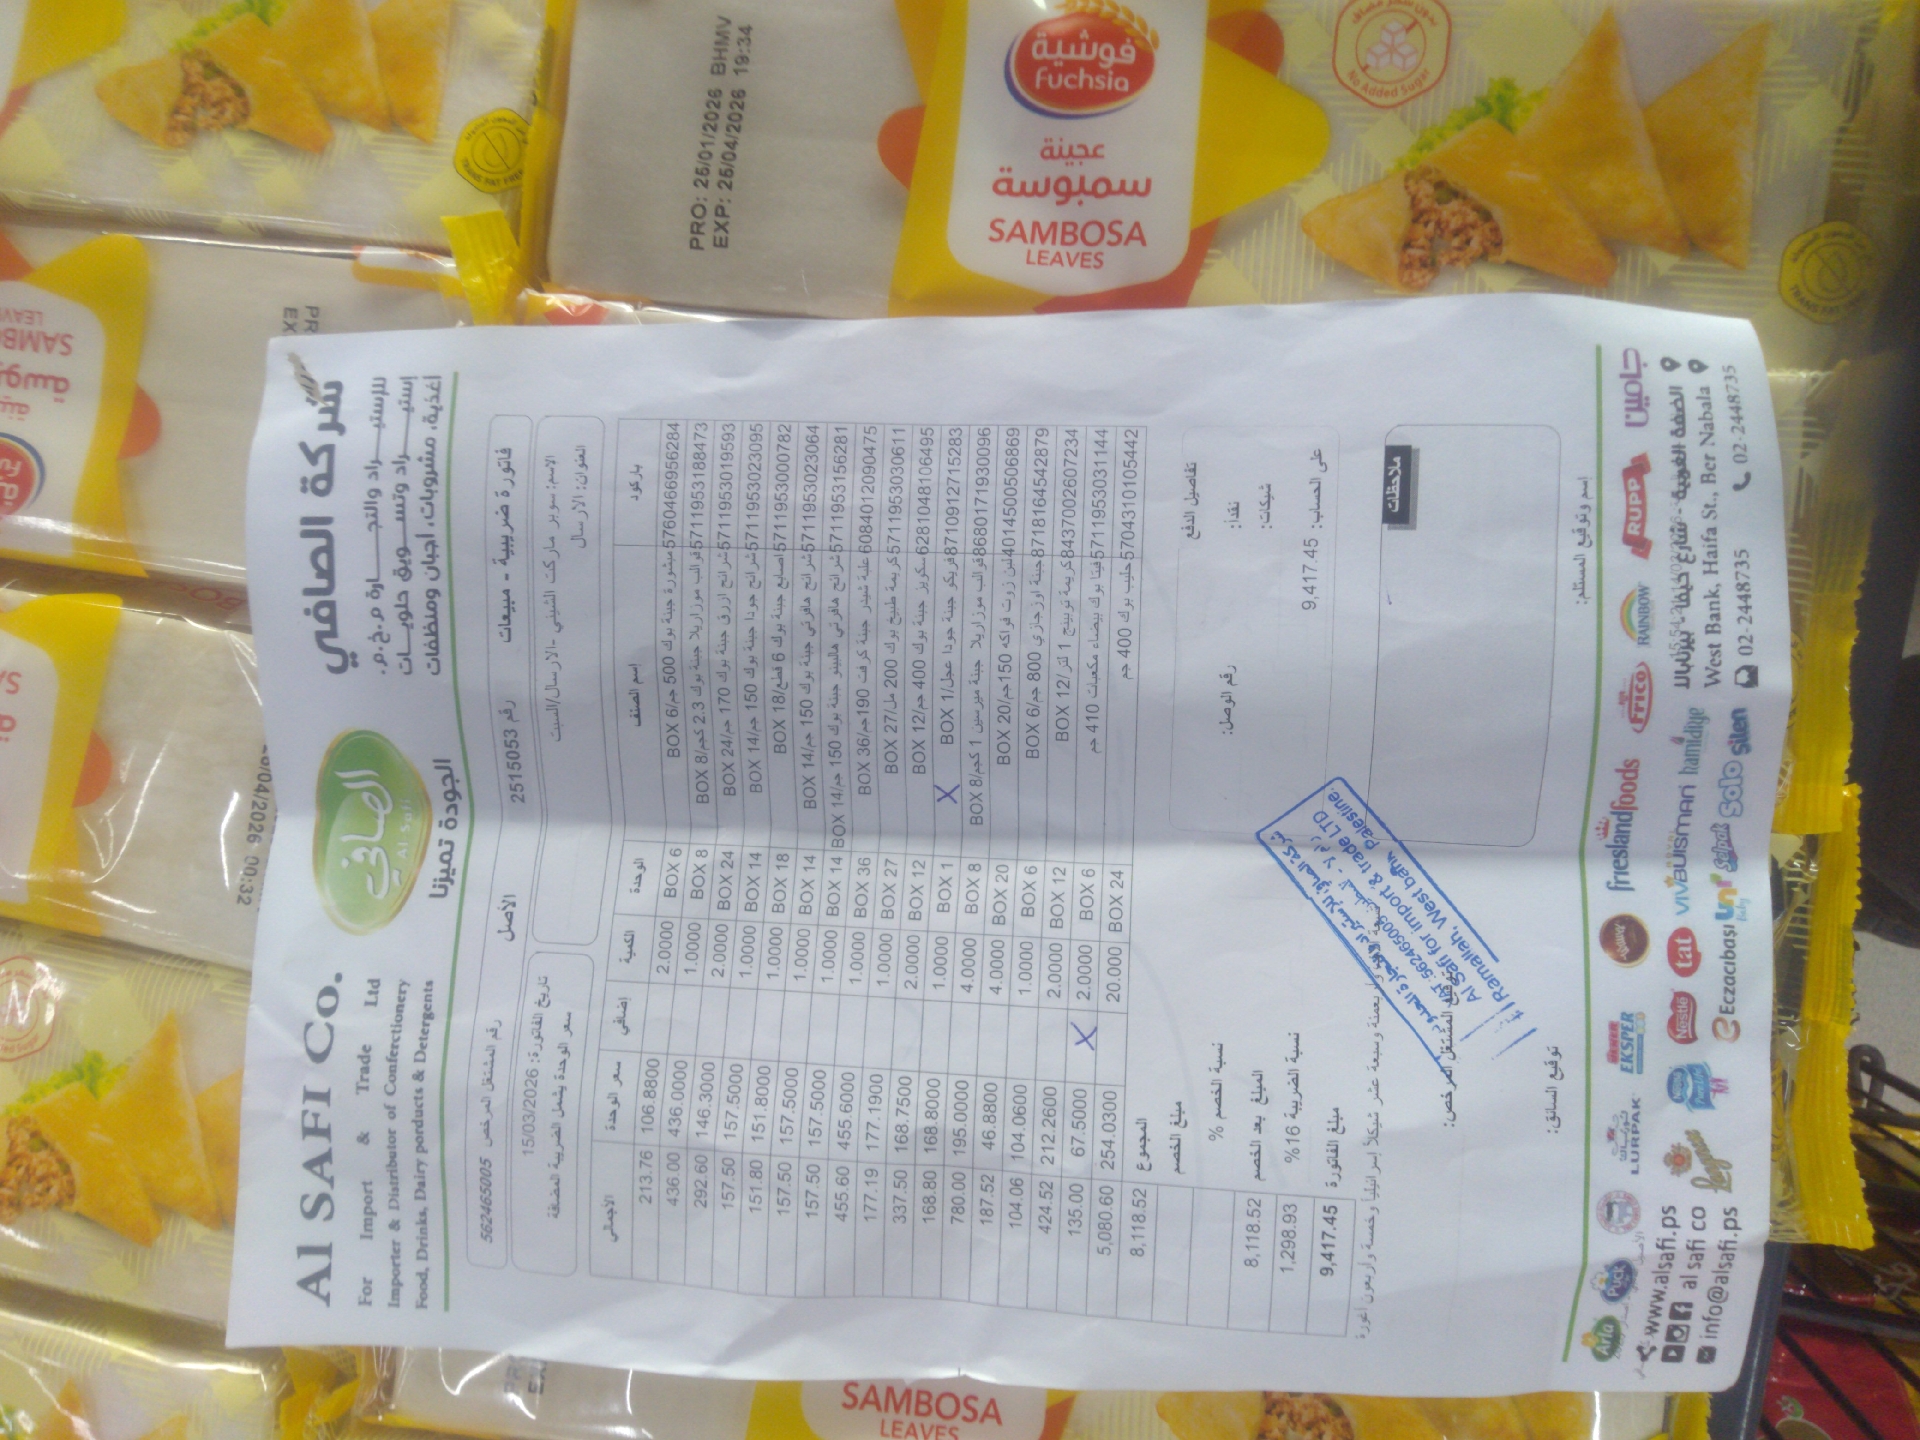 شركة الصافي
للإستيـــراد والتجـــارة م.خ.م.
إستيـــراد وتســـويق حلويـــات
أغذية، مشروبات، أجبان ومنظفات
الصافي
Al Safi
الجودة تميزنا
Al SAFI Co.
For Import & Trade Ltd
Importer & Distributor of Conferctionery
Food, Drinks, Dairy porducts & Detergents
فاتورة ضريبية - مبيعات رقم 2515053 الأصل رقم المشتغل المرخص 562465005
الاسم: سوبر ماركت الشيني -الارسال/السبت
العنوان: الارسال
تاريخ الفاتورة: 15/03/2026
سعر الوحدة يشمل الضريبة المضافة
باركود إسم الصنف الوحدة الكمية إضافي سعر الوحدة الاجمالي
5760466956284 منثورة جبنة بوك 500 جم/BOX 6 BOX 6 2.0000 106.8800 213.76
5711953188473 قوالب موزاريلا جبنة بوك 2.3 كجم/BOX 8 BOX 8 1.0000 436.0000 436.00
5711953019593 شرائح ازرق جبنة بوك 170 جم/BOX 24 BOX 24 2.0000 146.3000 292.60
5711953023095 شرائح جودا جبنة بوك 150 جم/BOX 14 BOX 14 1.0000 157.5000 157.50
5711953000782 اصابع جبنة بوك 6 قطع/BOX 18 BOX 18 1.0000 151.8000 151.80
5711953023064 شرائح هافرتي جبنة بوك 150 جم/BOX 14 BOX 14 1.0000 157.5000 157.50
5711953156281 شرائح هافرتي هالبينو جبنة بوك 150 جم/BOX 14 BOX 14 1.0000 157.5000 157.50
6084012090475 علبة شيدر جبنة كرفت 190جم/BOX 36 BOX 36 1.0000 455.6000 455.60
5711953030611 كريمة طبيخ بوك 200 مل/BOX 27 BOX 27 1.0000 177.1900 177.19
6281048106495 سكويز جبنة بوك 400 جم/BOX 12 BOX 12 2.0000 168.7500 337.50
8710912715283 فريكو جبنة جودا عجل/BOX 1 X BOX 1 1.0000 168.8000 168.80
8680171930096 قوالب موزاريلا جبنة ميرسين 1 كجم/BOX 8 BOX 8 4.0000 195.0000 780.00
4014500506869 لبن زوت فواكه 150جم/BOX 20 BOX 20 4.0000 46.8800 187.52
8718164542879 جبنة اوزجازي 800 جم/BOX 6 BOX 6 1.0000 104.0600 104.06
8437002607234 كريمة توبينج 1 لتر/BOX 12 BOX 12 2.0000 212.2600 424.52
5711953031144 فيتا بوك بيضاء مكعبات 410 جم BOX 6 2.0000 X 67.5000 135.00
5704310105442 حليب بوك 400 جم BOX 24 20.000 254.0300 5,080.60
المجموع 8,118.52
مبلغ الخصم
نسبة الخصم %
المبلغ بعد الخصم 8,118.52
نسبة الضريبة 16% 1,298.93
مبلغ الفاتورة 9,417.45
تفاصيل الدفع
نقدا:
رقم الوصل:
شيكات:
على الحساب: 9,417.45
وسبعة عشر شيكلاً إسرائيلياً وخمسة واربعون اغورة
ملاحظات
توقيع المشتغل المرخص:
Al Safi for import & trade LTD
Ramallah, West bank Palestine.
562465005
إسم وتوقيع المستلم:
توقيع السائق:
جاميين
RUPP
RAINBOW
Frico
frieslandfoods
EKSPER
LURPAK
PUCK
Arla
hamidiye
VIVBUISMAN
tat
Nestlé
silen
Solo
Selpak
Uni Baby
Eczacıbaşı
الضفة الغربية - شارع حيفا - بيرنبالا
West Bank, Haifa St., Ber Nabala
02-2448735 02-2448735
www.alsafi.ps
al safi co
info@alsafi.ps
فوشية
Fuchsia
عجينة
سمبوسة
SAMBOSA
LEAVES
PRO: 25/01/2026 BHMV
EXP: 25/04/2026 19:34
بدون سكر مضاف
No Added Sugar
TRANS FAT FREE
00:32
SAMBOSA
LEAVES